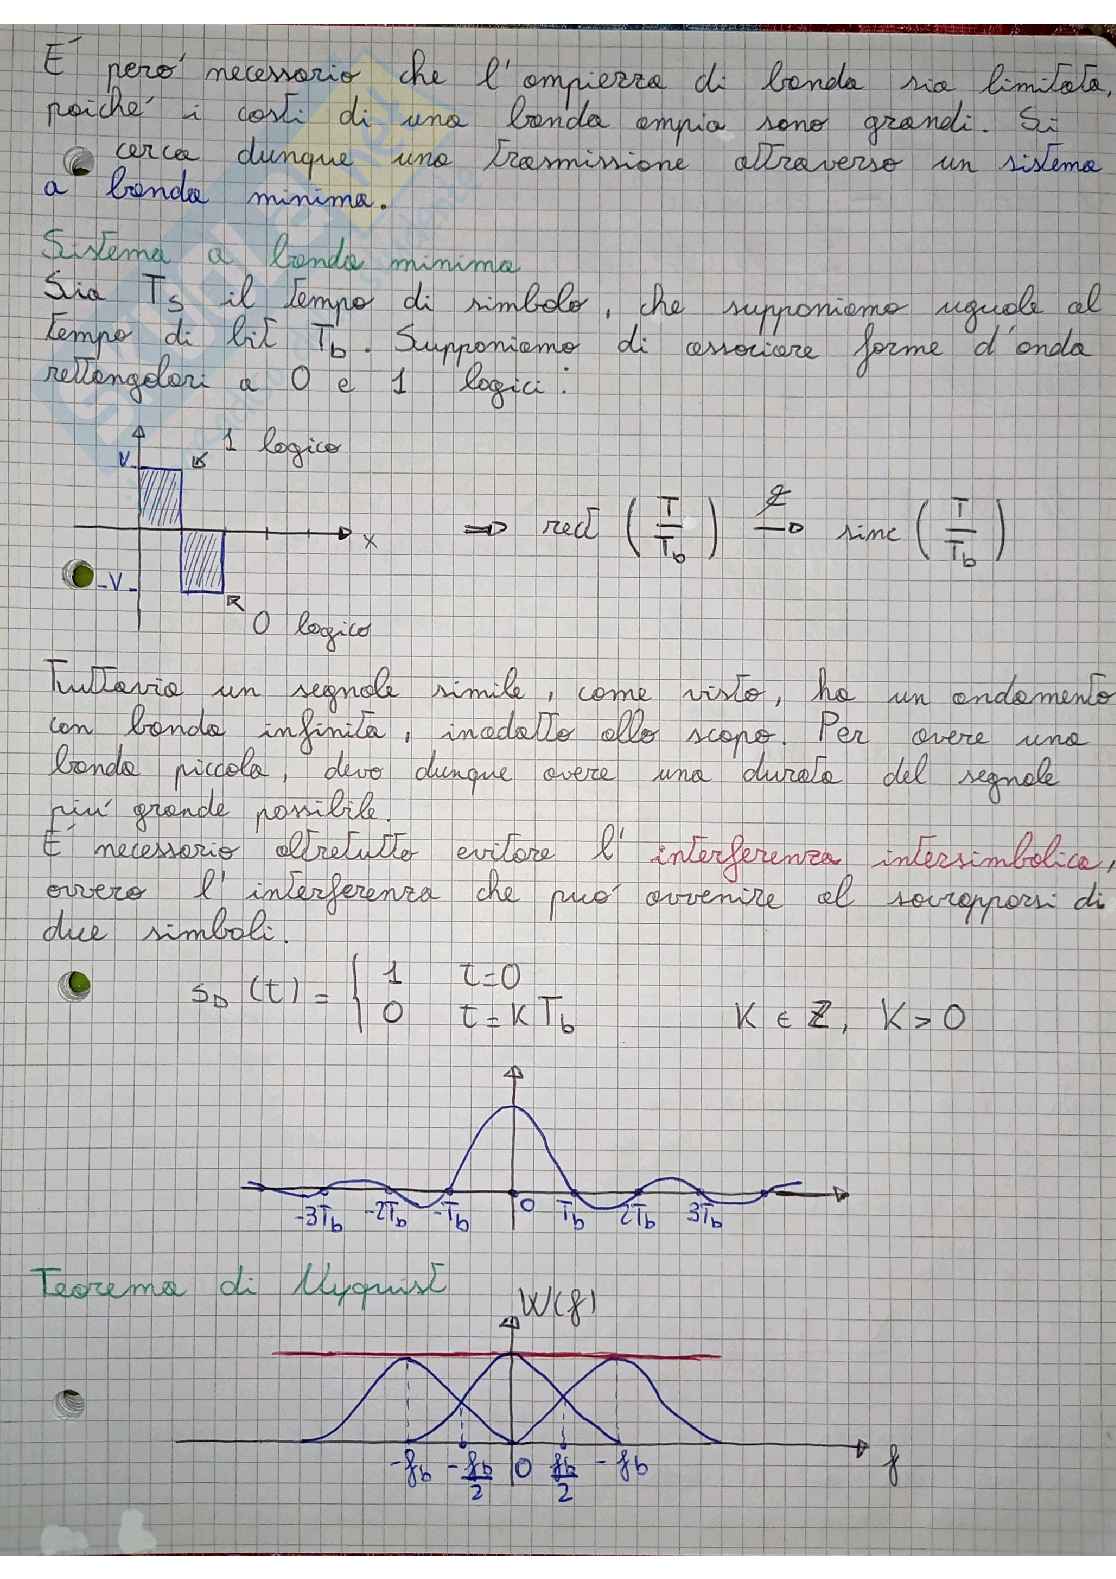 É peró necessario che l'ampiezza di banda sia limitata,
poiché i costi di una banda ampia sono grandi. Si
cerca dunque una trasmissione attraverso un sistema
a banda minima.
Sistema a banda minima
Sia Ts il tempo di simbolo, che supponiamo uguale al
tempo di bit Tb. Supponiamo di associare forme d'onda
rettangolari a 0 e 1 logici:
1 logico
V
x
-V
0 logico
⇒ rect (T/Tb) → sinc (T/Tb)
Tuttavia un segnale simile, come visto, ha un andamento
con banda infinita, inadatto allo scopo. Per avere una
banda piccola, devo dunque avere una durata del segnale
piú grande possibile.
É necessario oltretutto evitare l'interferenza intersimbolica,
ovvero l'interferenza che puó avvenire al sovrapporsi di
due simboli.
(t) = { 1 t=0
0 t=KTb K ∈ Z, K>0
-3Tb -2Tb -Tb 0 Tb 2Tb 3Tb
Teorema di Nyquist
W(f)
-fb -fb/2 0 fb/2 -fb f